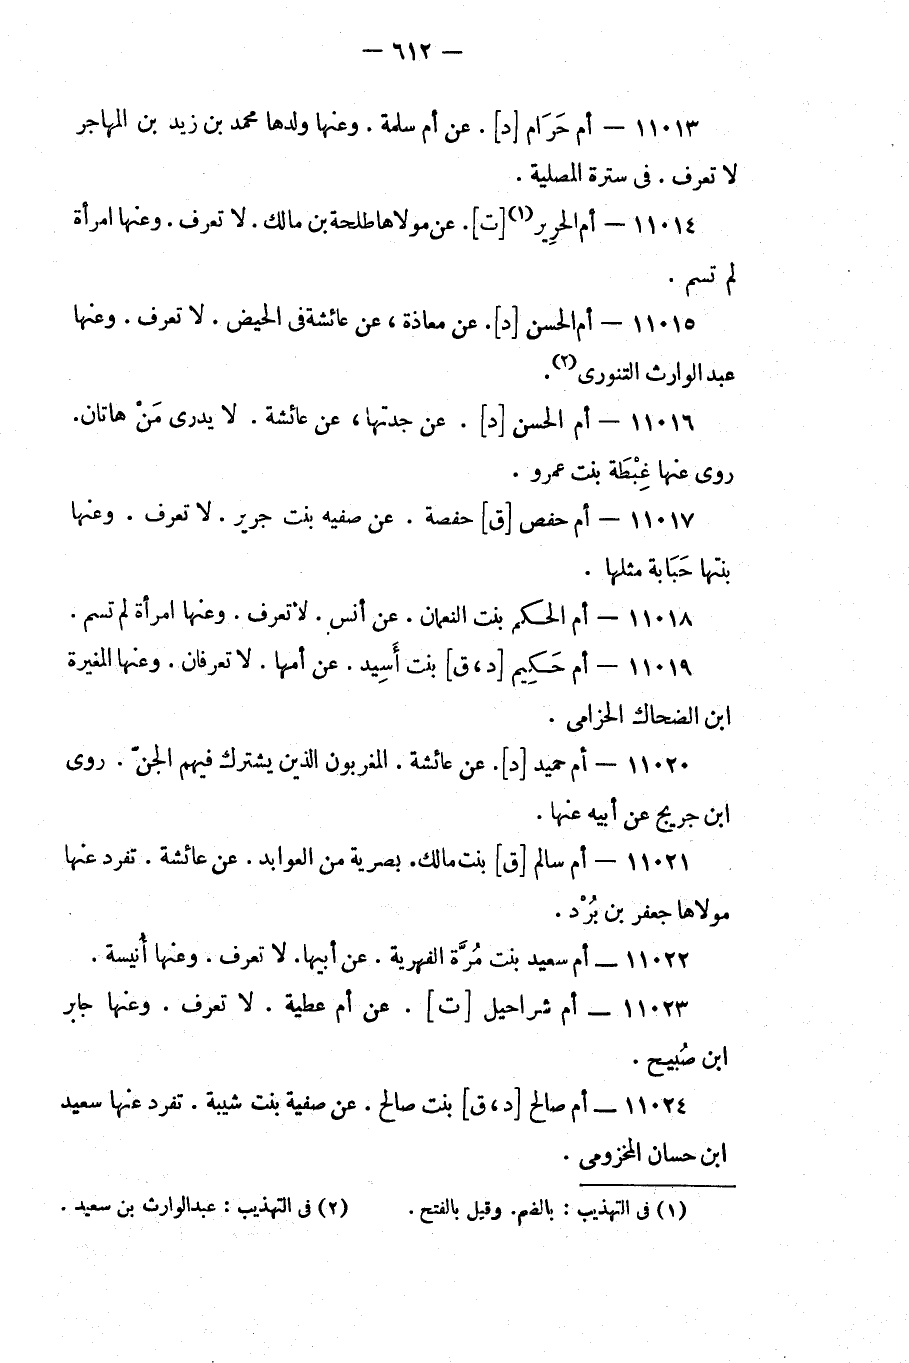 — ٦١٢ —
١١٠١٣ — أم حَرَام [د] . عن أم سلمة . وعنها ولدها محمد بن زيد بن المهاجر
لا تعرف . فى سترة المصلية .
١١٠١٤ — أم الحرِير(١) [ت]. عن مولاها طلحة بن مالك . لا تعرف . وعنها امرأة
لم تسم .
١١٠١٥ — أم الحسن [د]. عن معاذة ، عن عائشة فى الحيض . لا تعرف . وعنها
عبد الوارث التنورى(٢).
١١٠١٦ — أم الحسن [د] . عن جدتها ، عن عائشة . لا يدرى مَنْ هاتان.
روى عنها غِبْطَة بنت عمرو .
١١٠١٧ — أم حفص [ق] حفصة . عن صفيه بنت جرير . لا تعرف . وعنها
بنتها حَبَابة مثلها .
١١٠١٨ — أم الحكم بنت النعمان . عن أنس . لا تعرف . وعنها امرأة لم تسم .
١١٠١٩ — أم حَكِيم [د ، ق] بنت أَسِيد . عن أمها . لا تعرفان . وعنها المغيرة
ابن الضحاك الحزامى .
١١٠٢٠ — أم حميد [د]. عن عائشة . المغربون الذين يشترك فيهم الجنّ . روى
ابن جريج عن أبيه عنها .
١١٠٢١ — أم سالم [ق] بنت مالك. بصرية من العوابد . عن عائشة . تفرد عنها
مولاها جعفر بن بُرْد .
١١٠٢٢ — أم سعيد بنت مُرَّة الفهرية . عن أبيها. لا تعرف . وعنها أُنيسة .
١١٠٢٣ — أم شراحيل [ت] . عن أم عطية . لا تعرف . وعنها جابر
ابن صُبيح .
١١٠٢٤ — أم صالح [د ، ق] بنت صالح . عن صفية بنت شيبة . تفرد عنها سعيد
ابن حسان المخزومى .
(١) فى التهذيب : بالضم. وقيل بالفتح . (٢) فى التهذيب : عبدالوارث بن سعيد .